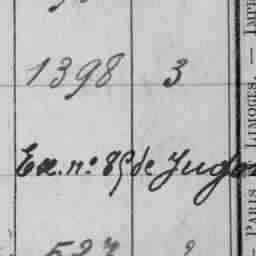 1398 3
Ex. n° 89 de Jugon
527
PARIS LIMOGES. — IMPR